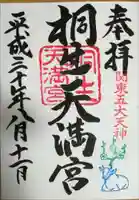 奉拝
関東五大天神
桐生天満宮
平成三十年八月十一日